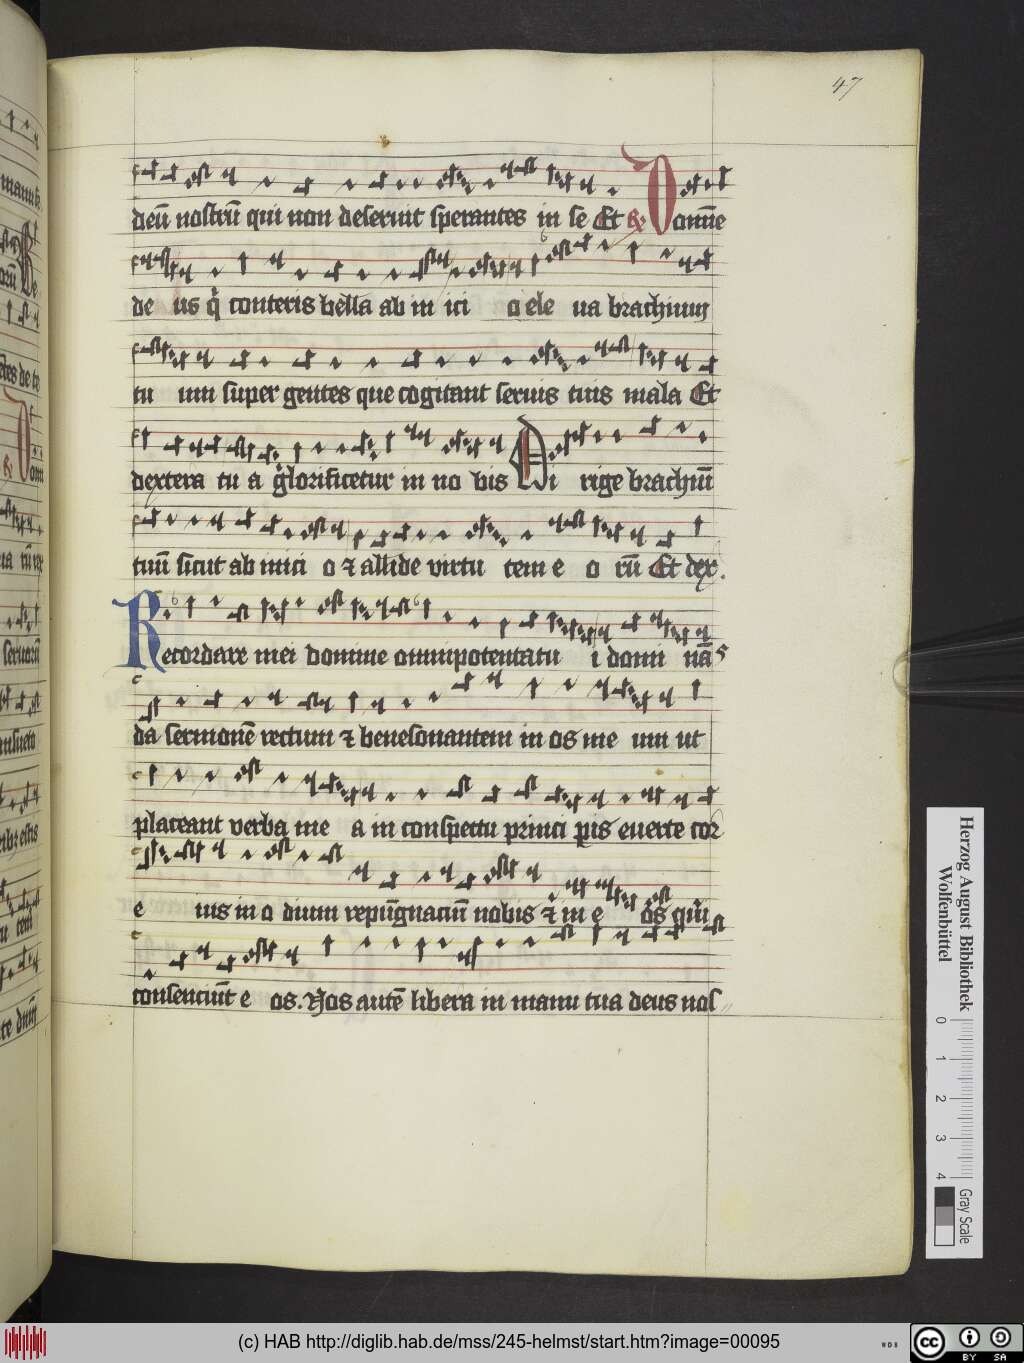 47
deū nostrū qui non deseruit sperantes in se Et ℟ Domine
de us q̇ conteris bella ab in ici o ele ua brachium
tu um super gentes que cogitant seruis tuis mala Et
dextera tu a glorificetur in no bis Di rige brachiū
tuū sicut ab inici o ⁊ allide virtu tem e o rū Et dex.
Recordare mei domine omnipotentatu i domi nās
da sermonē rectum ⁊ benesonantem in os me um ut
placeant verba me a in conspectu princi pis euerte cor
e ius in o dium repūgnaciū nobis ⁊ in e os qui
consenciūt e os. Nos autē libera in manu tua deus nos
manu
De
de te
Dom
seruorū
te dnm
Herzog August Bibliothek
Wolfenbüttel
0 1 2 3 4
Gray Scale
(c) HAB http://diglib.hab.de/mss/245-helmst/start.htm?image=00095
WDB
cc BY SA